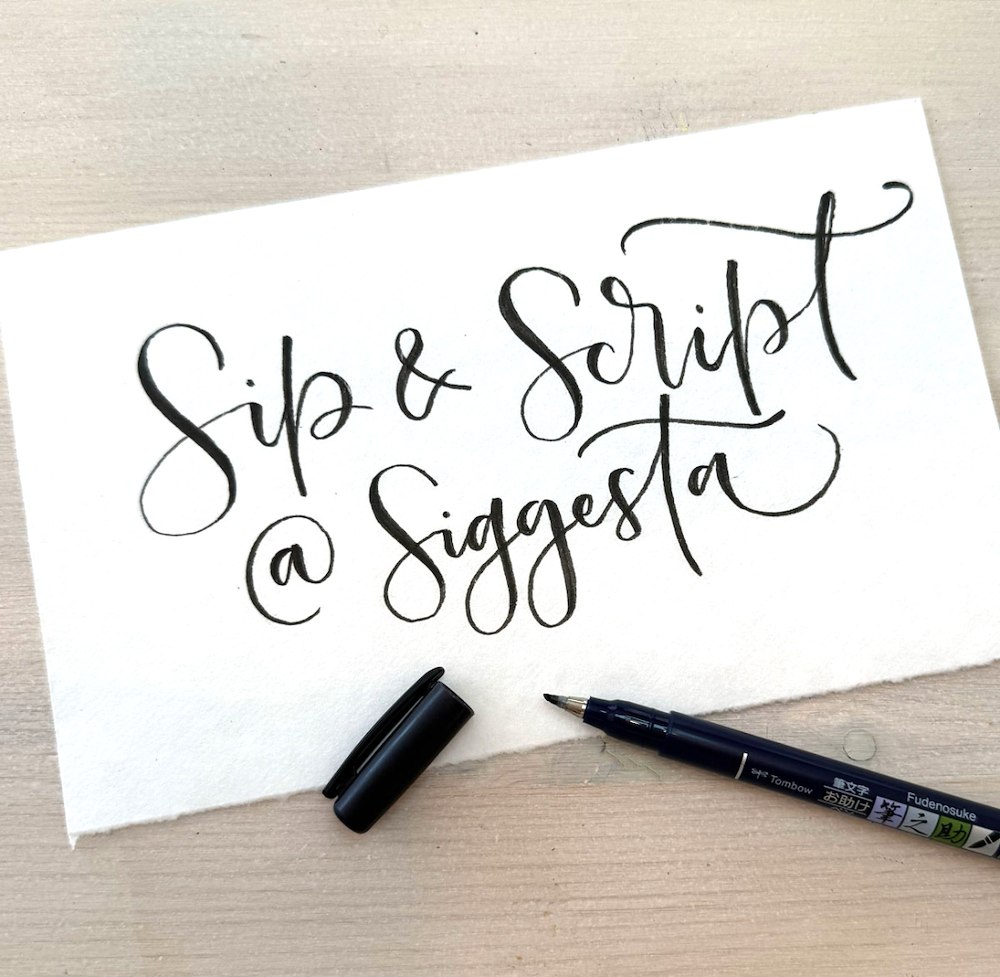 Sip & Script
@ Siggesta
Tombow
筆文字
お助け
筆之助
Fudenosuke